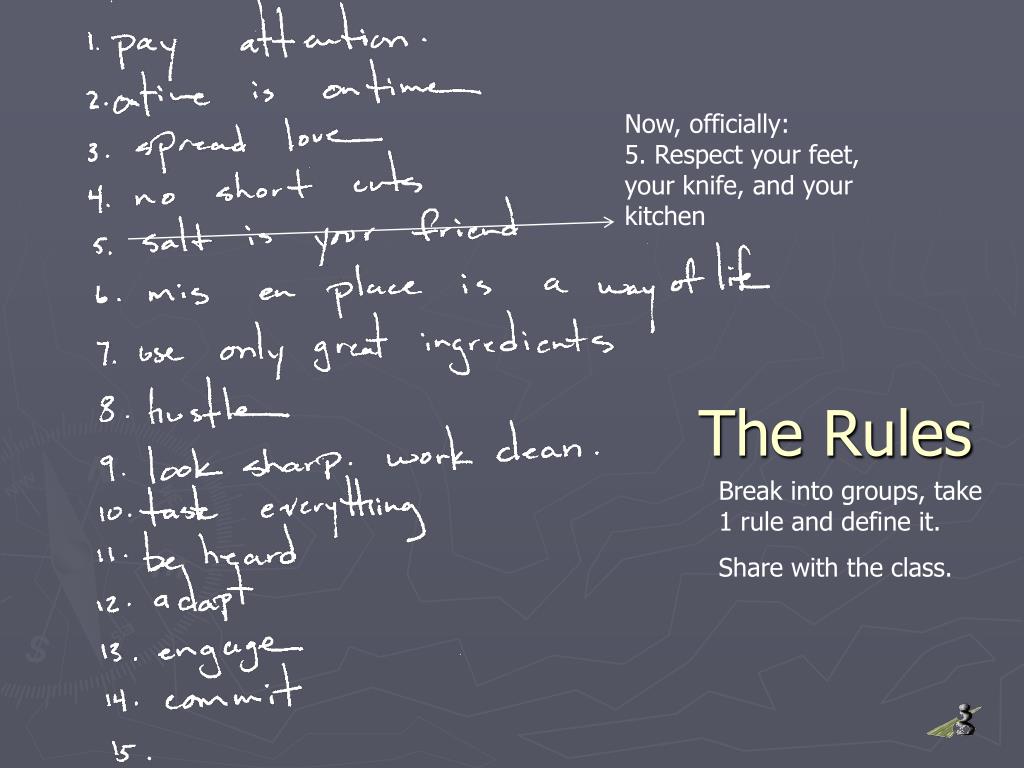 1. pay attention.
2. ontime is ontime
3. spread love
4. no short cuts
5. salt is your friend
6. mis en place is a way of life
7. use only great ingredients
8. hustle
9. look sharp. work clean.
10. taste everything
11. be heard
12. adapt
13. engage
14. commit
15.
Now, officially:
5. Respect your feet,
your knife, and your
kitchen
The Rules
Break into groups, take
1 rule and define it.
Share with the class.